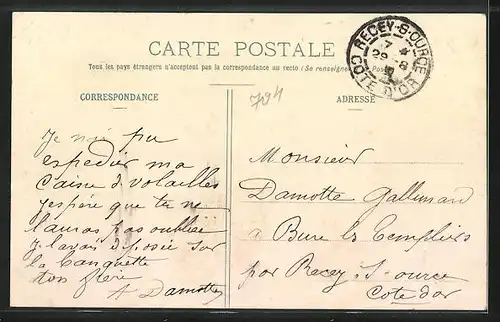 CARTE POSTALE
Tous les pays étrangers n'acceptent pas la correspondance au recto (Se renseigner
RECEY-S-OURCE
7 *
29 -8
COTE D'OR
CORRESPONDANCE
794
ADRESSE
Je n'ai pu
espedier ma
Caisse d volailles
j'espère que tu ne
l'auras pas oubliée
je l'avais déposée sur
la banquette
ton frère
A Damotte
Monsieur
Damotte Gallimard
a Bure les Templiers
par Recey-s-ource
Cote d'or